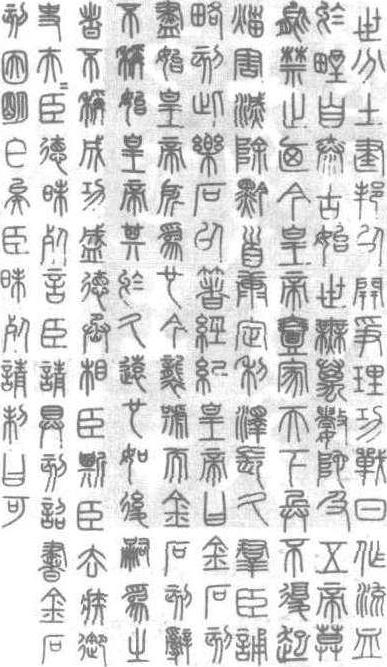 世分土建邦以開爭理功戰日作流血
於野自泰古始世無萬數陀及五帝莫
能禁止廼今皇帝壹家天下兵不復起
災害滅除黔首康定利澤長久群臣誦
略刻此樂石以著經紀皇帝曰金石刻
盡始皇帝所為也今襲號而金石刻辭
不稱始皇帝其於久遠也如後嗣為之
者不稱成功盛德丞相臣斯臣去疾御
史夫=臣德昧死言臣請具刻詔書金石
刻因明白矣臣昧死請制曰可